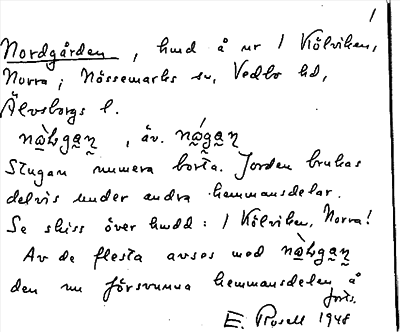 1
Nordgården, hmd å nr 1 Kölviken,
Norra; Nössemarks sn, Vedbo hd,
Älvsborgs l.
, äv.
Stugan numera borta. Jorden brukas
delvis under andra hemmansdelar.
Se skiss över hmdd: 1 Kölviken, Norra!
Av de flesta avses med
den nu försvunna hemmansdelen å
forts.
E. Rosell 1948